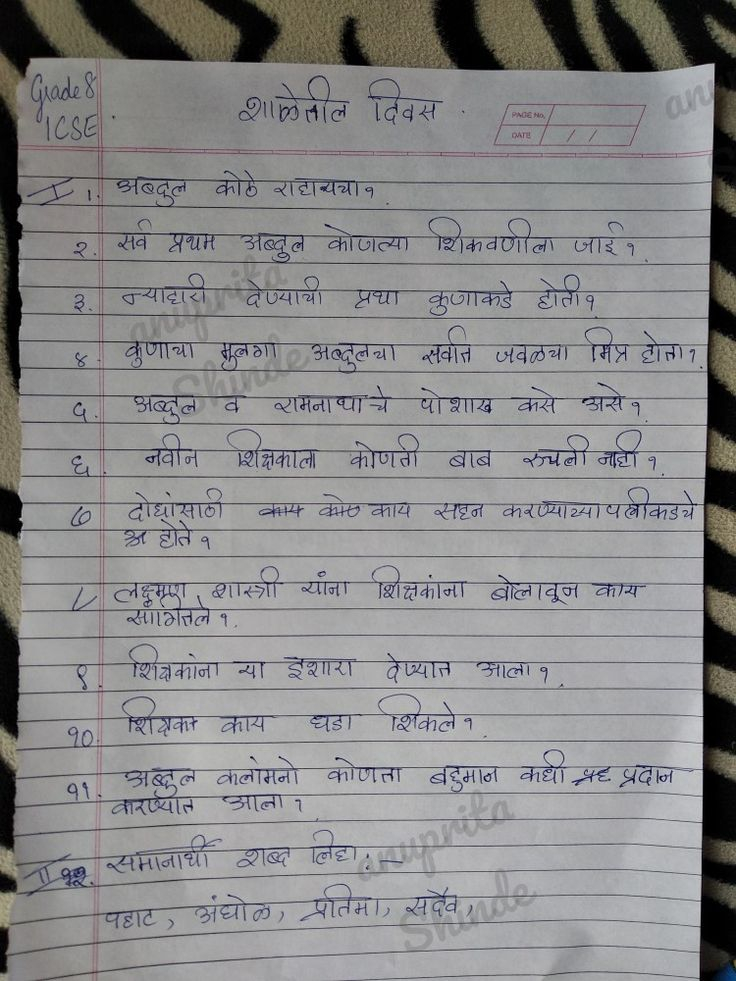 Grade 8
ICSE
शाळेतील दिवस
PAGE No.
DATE / /
I १. अब्दुल कोठे राहायचा?
२. सर्व प्रथम अब्दुल कोणत्या शिकवणीला जाई?
३. न्याहारी देण्याची प्रथा कुणाकडे होती?
४. कुणाचा मुलगा अब्दुलचा सर्वात जवळचा मित्र होता?
५. अब्दुल व रामनाथाचे पोशाख कसे असे?
६. नवीन शिक्षकाला कोणती बाब रुचली नाही?
७ दोघांसाठी काय सहन करण्याच्या पलीकडचे
होते?
८ लक्ष्मण शास्त्री यांना शिक्षकांना बोलावून काय
सांगितले?
९. शिक्षकांना या इशारा देण्यात आला?
१०. शिक्षक काय धडा शिकले?
११. अब्दुल कलामनो कोणता बहुमान कधी प्रदान
करण्यात आला?
II समानार्थी शब्द लिहा.
पहाट, अंघोळ, प्रतिमा, सदैव,
anuprita
Shinde
anuprita
Shinde